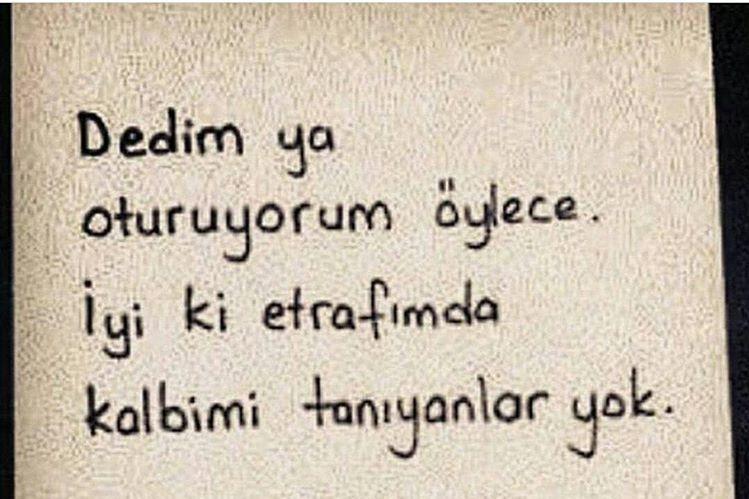 Dedim ya
oturuyorum öylece.
İyi ki etrafımda
kalbimi tanıyanlar yok.